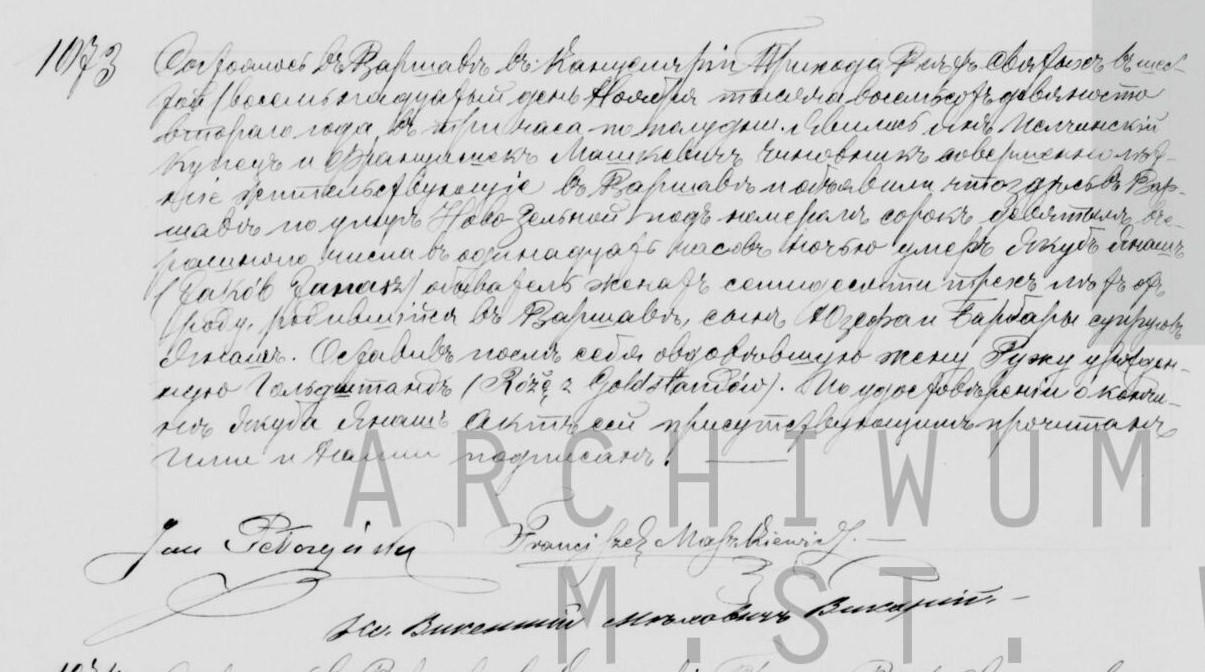 1073
Состоялось въ Варшавѣ въ Канцеляріи Прихода Всѣхъ Святыхъ въ шес-
той (восемьнадцатый день Ноября тысяча восемьсотъ девяносто
втораго года, въ три часа по полудни. Явились Янъ
купецъ и Францишекъ Машкевичъ чиновникъ совершеннолѣт-
ніе жительствующіе въ Варшавѣ и объявили что здѣсь въ Вар-
шавѣ по улицѣ Ново-Зельной подъ номеромъ сорокъ девятымъ, вче-
рашнего числа въ одинадцать часовъ ночью умеръ Якубъ Янашъ
(Jakób Janasz) обыватель женатъ семидесяти трехъ лѣтъ отъ
роду, родившійся въ Варшавѣ, сынъ Юзефа и Барбары супруговъ
Янашъ. Оставивъ послѣ себя овдовѣвшую жену Ружу урожден-
ную Гольдштандъ (Różę z Goldstandów). По удостовѣреніи о кончи-
нѣ Якуба Янашъ Актъ сей присутствующимъ прочитанъ
ими и Нами подписанъ.
Jan Franciszek Maszkiewicz.
Кс. Викентий Викарій.
ARCHIWUM
M.ST.